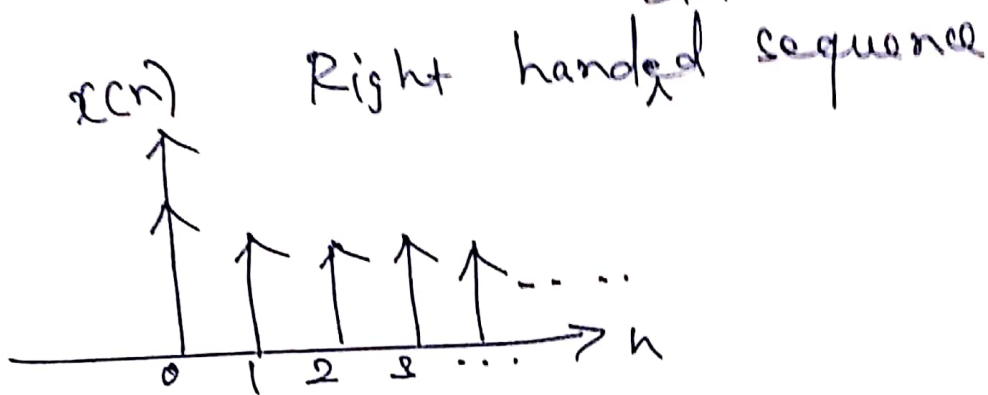 Right handed sequence
x(n)
..... 
n
0 1 2 3 ...